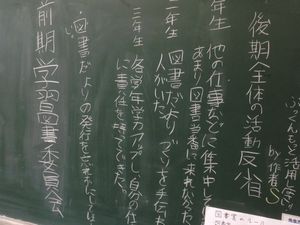 後期全体の活動反省
by作者S
年生 他の仕事などに集中し
あまり図書当番に来れなかった
年生 図書だよりづくりを手伝
人がいた。
三年生 各学年学力アップし、自分の仕
に責任を持ってできた。
図書だよりの発行を忘れず
前期学習図書委員会
図書室の